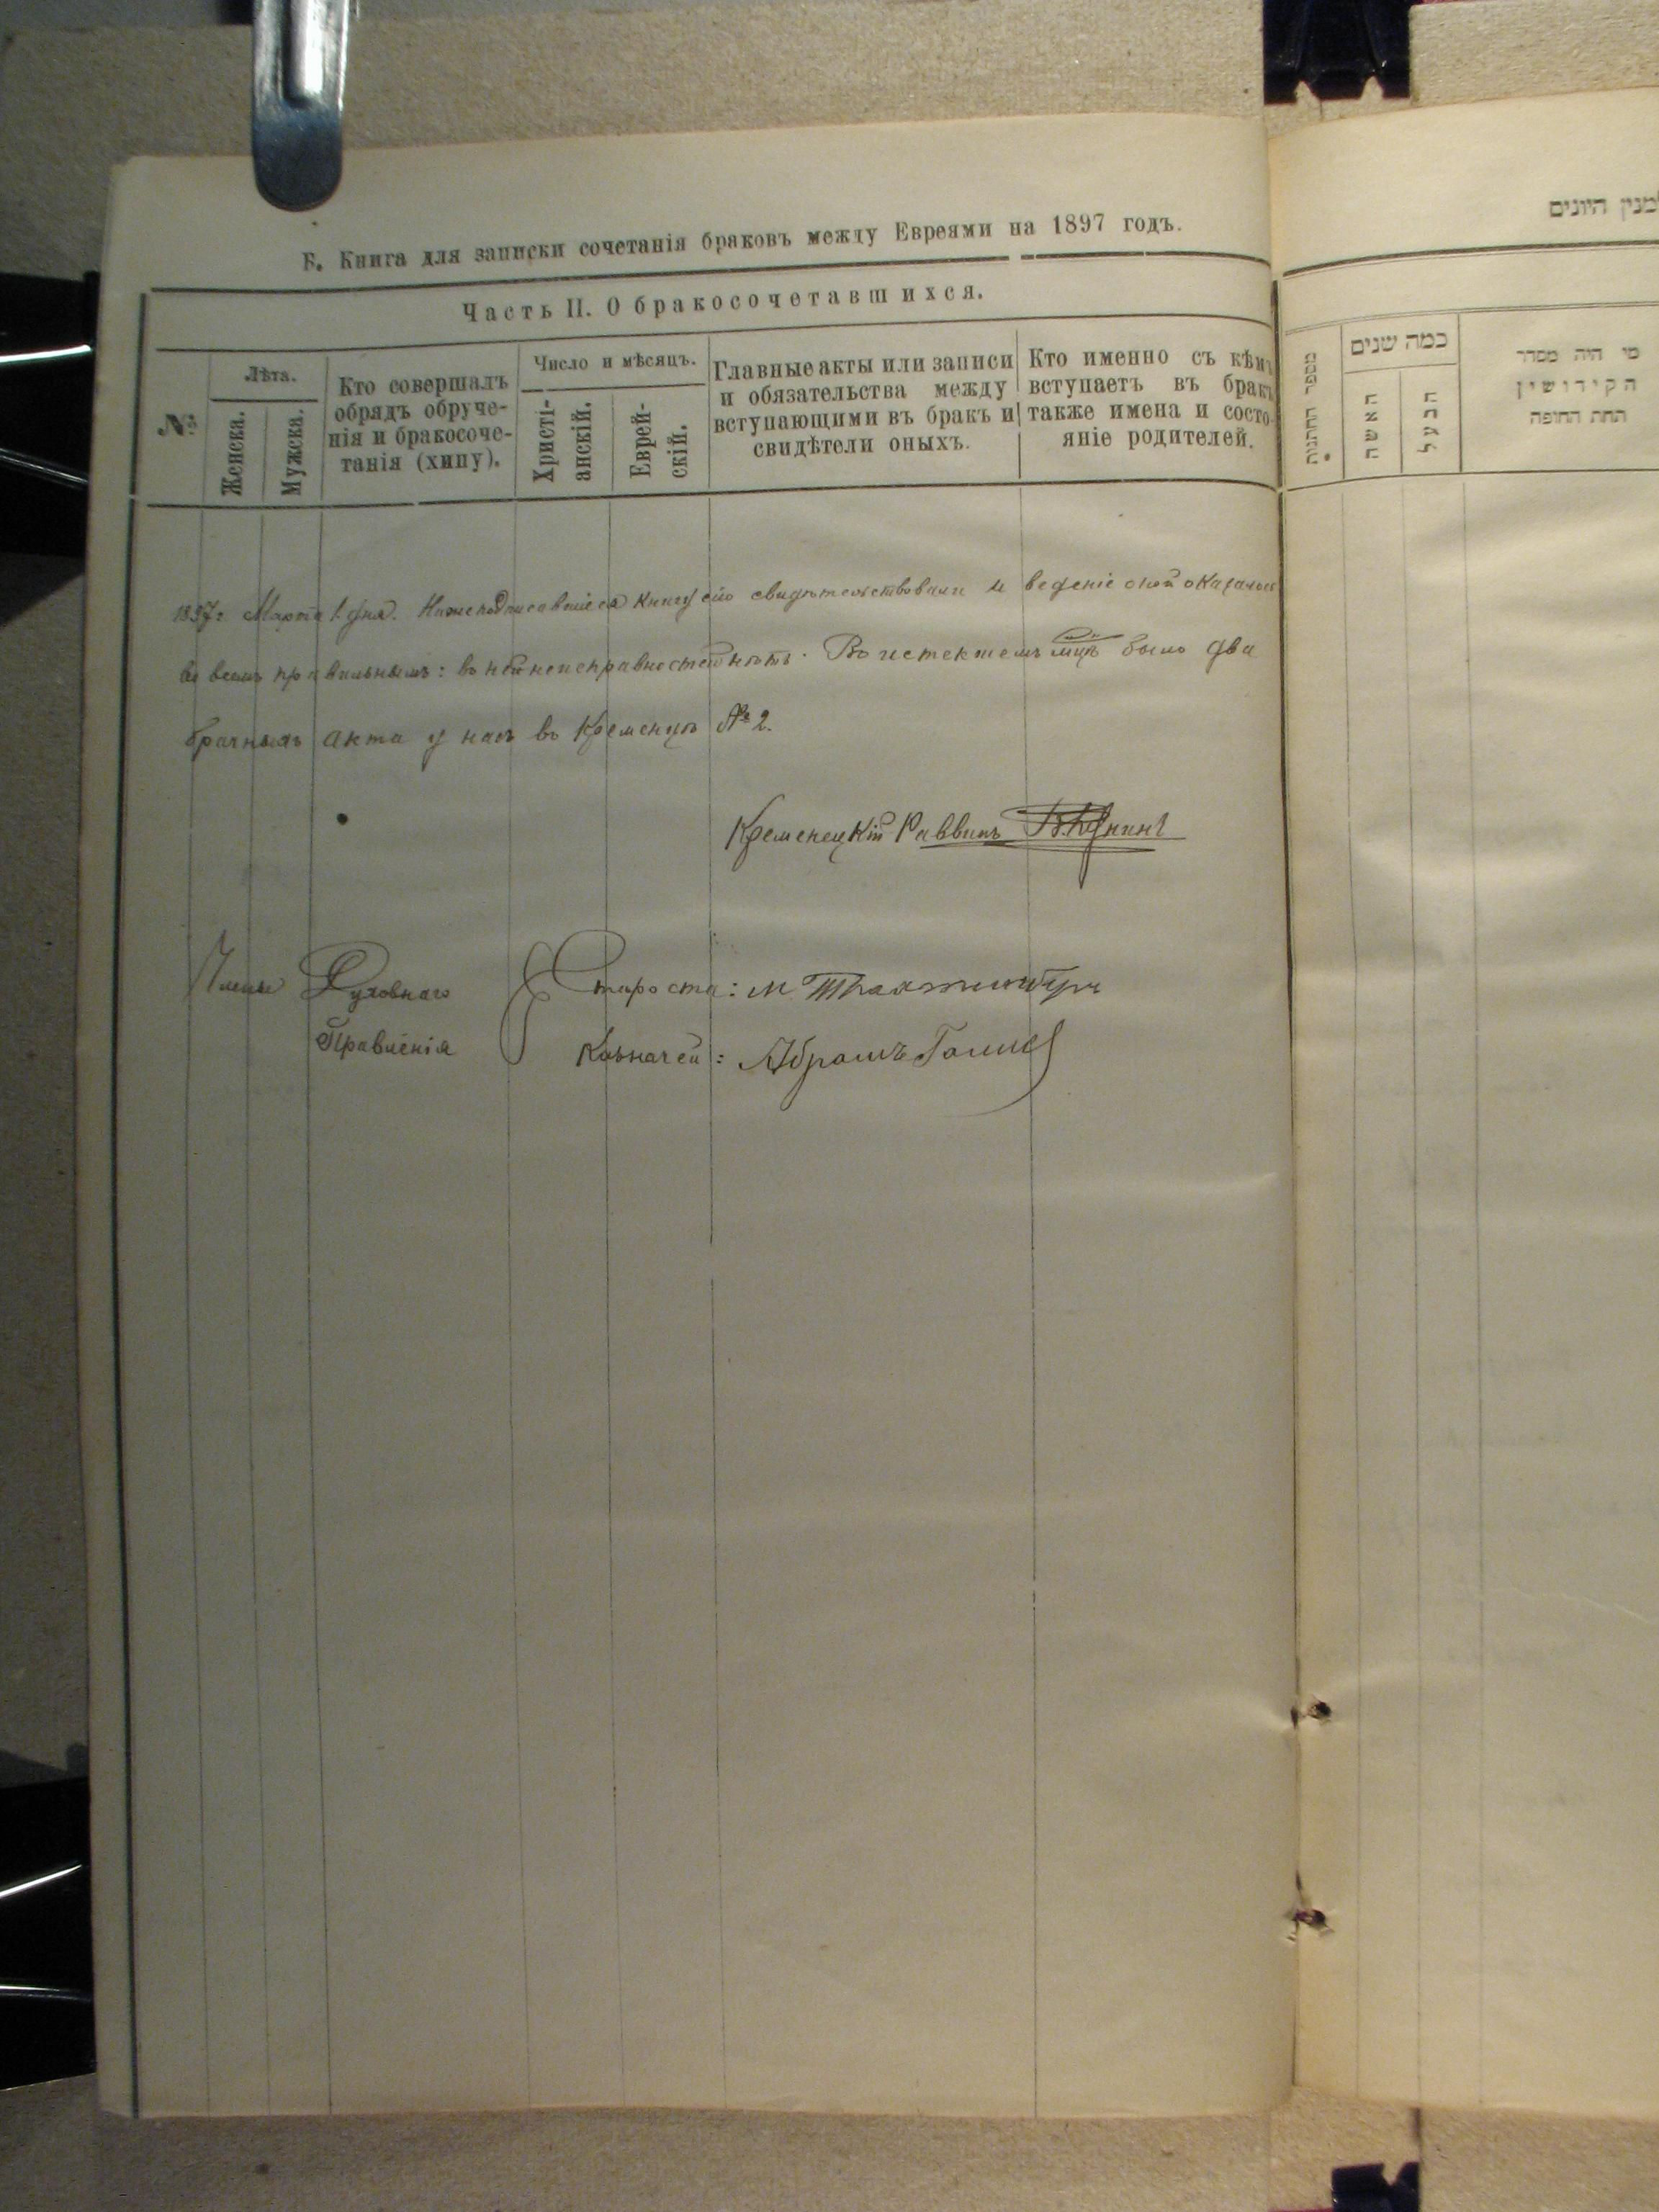 Б. Книга для записки сочетанія браковъ между Евреями на 1897 годъ.
Часть II. О бракосочетавшихся.
№
Лѣта.
Женска.
Мужска.
Кто совершалъ
обрядъ обруче-
нія и бракосоче-
танія (хипу).
Число и мѣсяцъ.
Христі-
анскій.
Еврей-
скій.
Главные акты или записи
и обязательства между
вступающими въ бракъ и
свидѣтели оныхъ.
Кто именно съ кѣмъ
вступаетъ въ бракъ
также имена и состо-
яніе родителей.
1897 г. Марта 1 дня. Нижеподписавшіеся книгу сію свидѣтельствовали и веденіе оной оказалось
во всемъ правильнымъ: въ ней неисправностей нѣтъ. Во истекшемъ мцѣ было два
брачныхъ акта у насъ въ Кременцѣ № 2.
Кременецкій Раввинъ
Члены Духовнаго
Правленія
Староста: М
Казначей: Абрамъ
למנין היונים
מספר החתונות
כמה שנים
האשה
הבעל
מי היה מסדר
הקידושין
תחת החופה